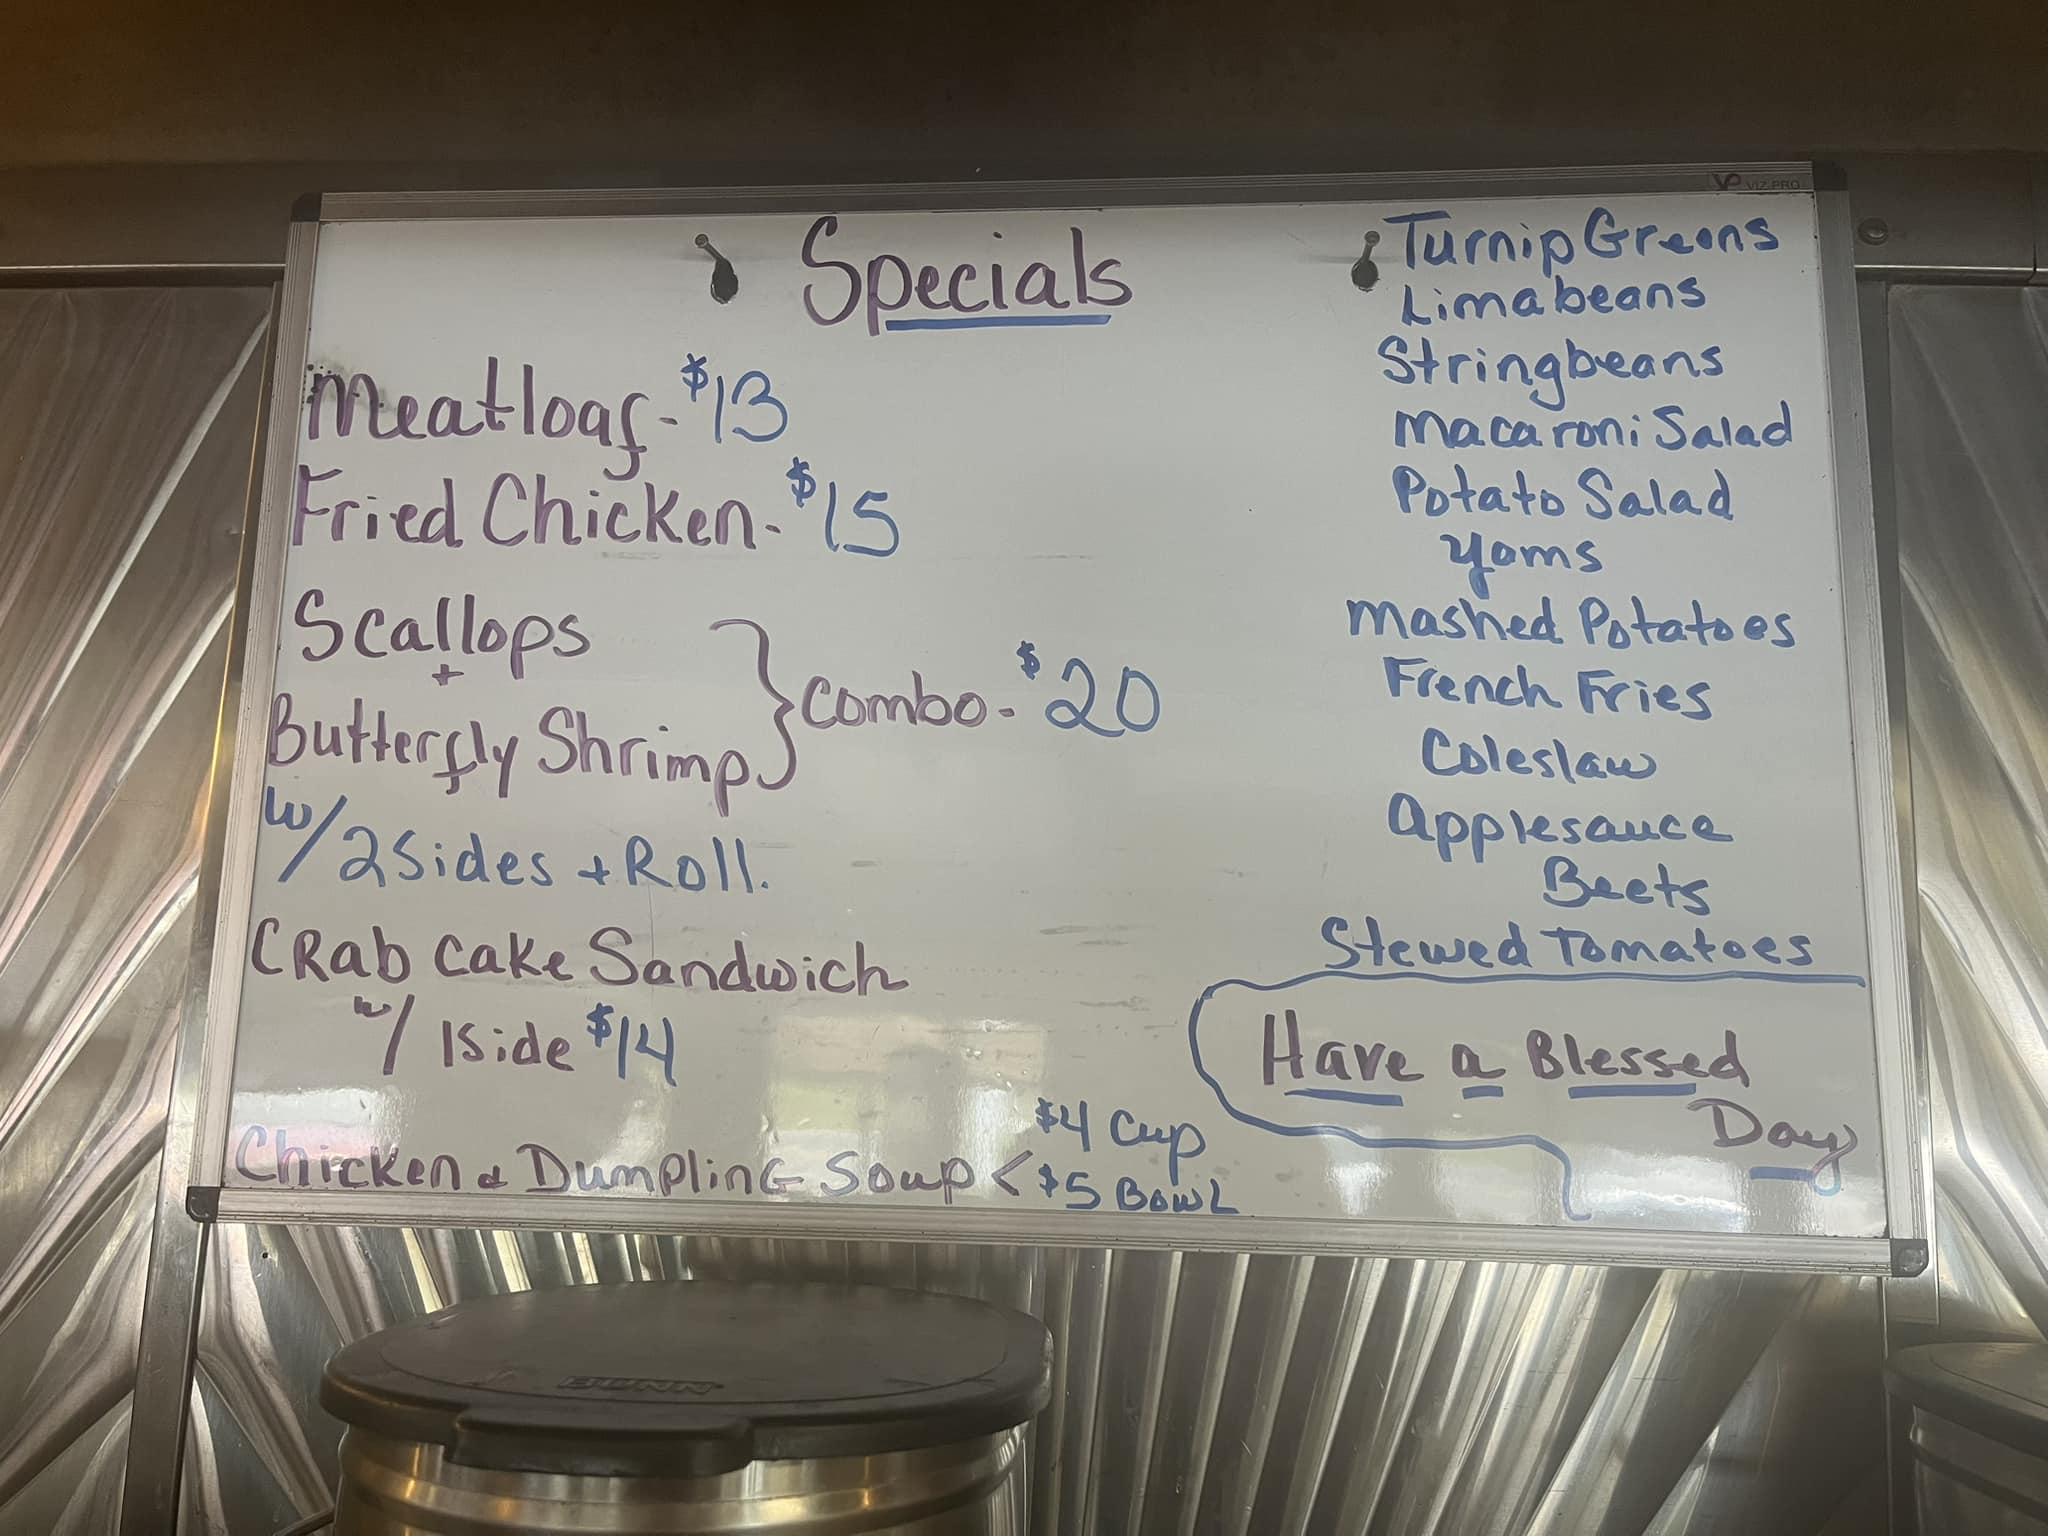 VP VIZ-PRO
Specials
Meatloaf - $13
Fried Chicken - $15
Scallops
+
Butterfly Shrimp } Combo - $20
w/ 2 Sides + Roll.
CRab Cake Sandwich
w/ 1 Side $14
Chicken & Dumpling Soup < $4 Cup
$5 Bowl
Turnip Greens
Limabeans
Stringbeans
Macaroni Salad
Potato Salad
Yams
Mashed Potatoes
French Fries
Coleslaw
Applesauce
Beets
Stewed Tomatoes
Have a Blessed
Day
BUNN